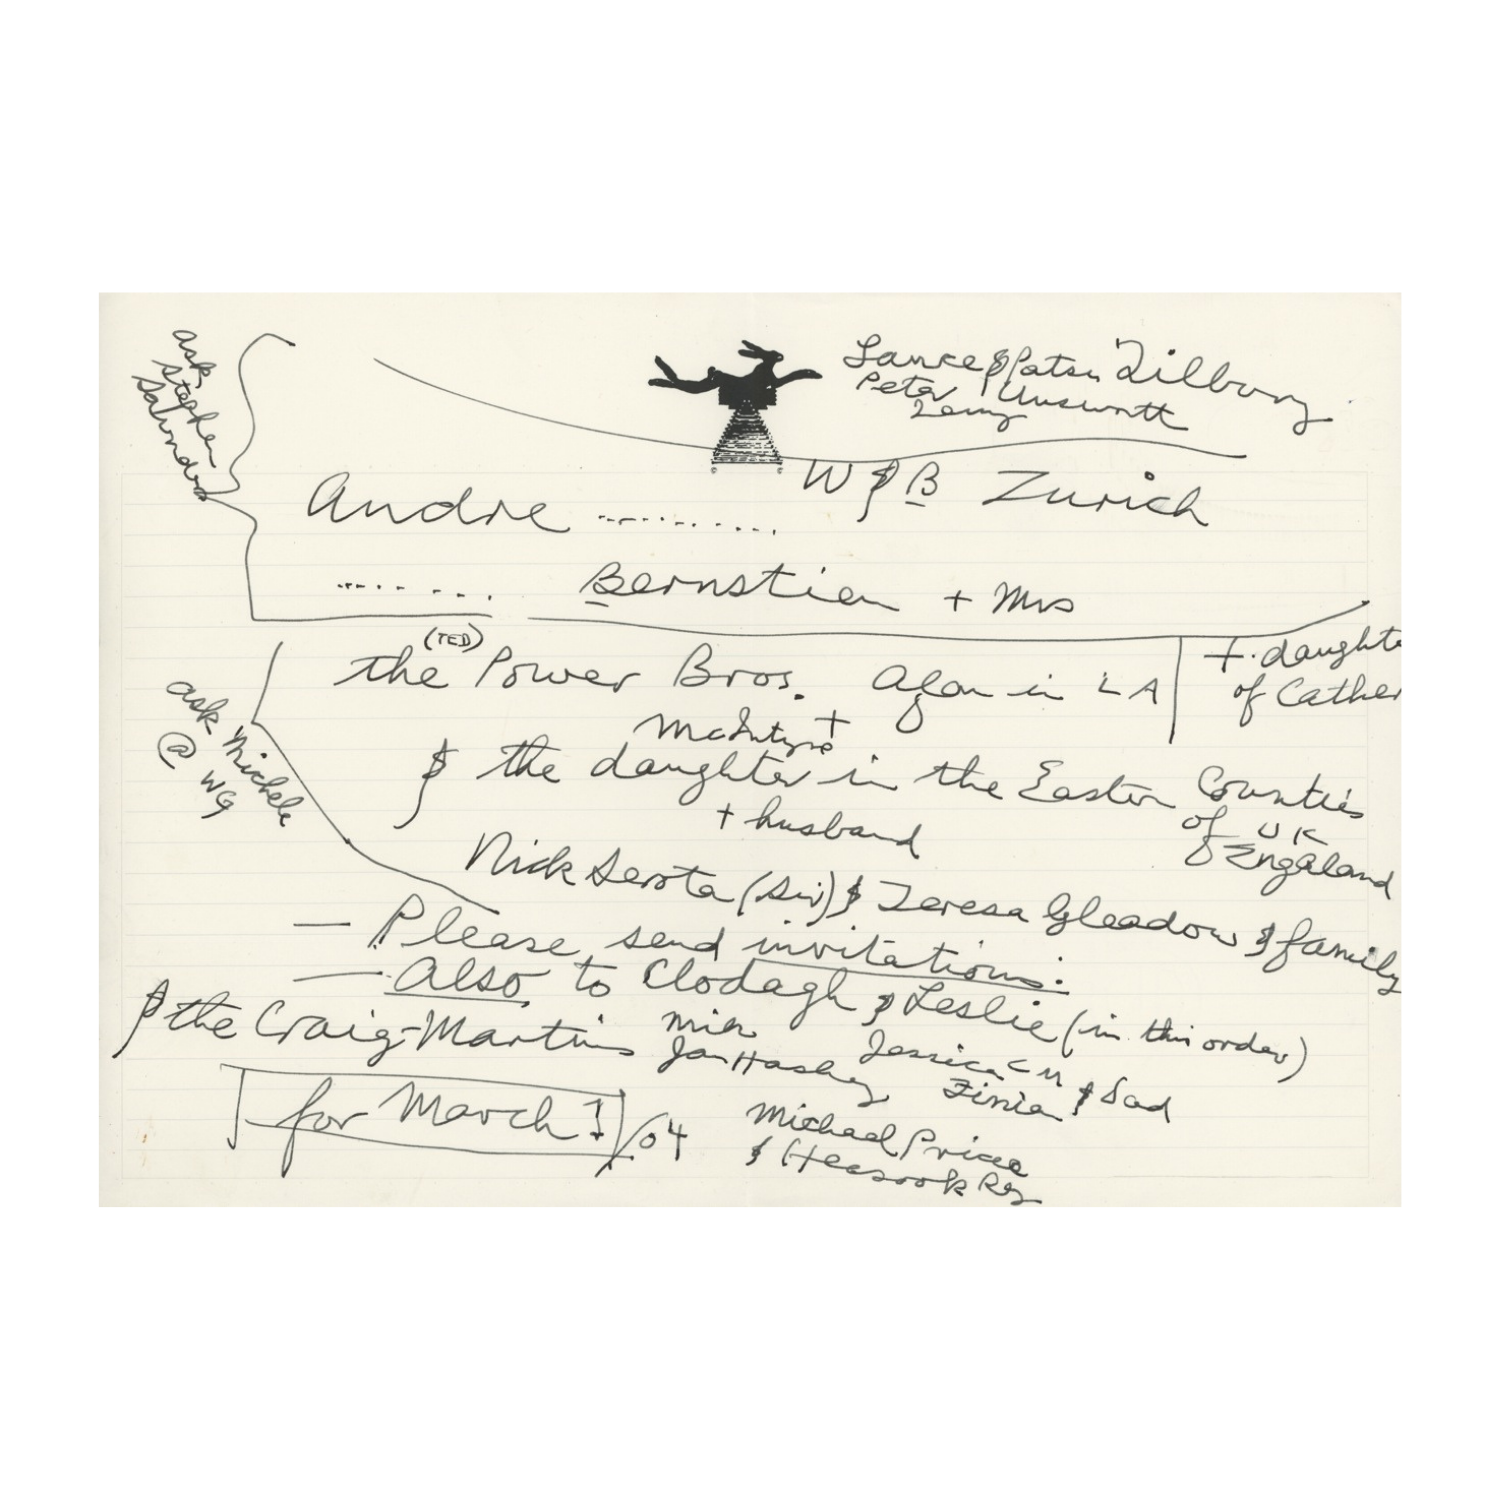 ask
Stephen
Saunders
Lance & Patsu Tilbury
Peter Unswortt
W & B Zurich
Andre ..........
........ Bernstien + Mrs
ask Michele
@ WG
(TED)
the Power Bros. Alan in LA
+ daughte
of Cather
McIntyre +
& the daughter in the Eastern Counties
of UK
Engaland
+ husband
Nick Serota (Sir) & Teresa Gleadow & family
— Please send invitations:
— Also to Clodagh & Leslie (in this order)
& the Craig-Martins
Jan Hashey
Jessica CM
& Dad
for March!/04
Michael Price
& Heasook